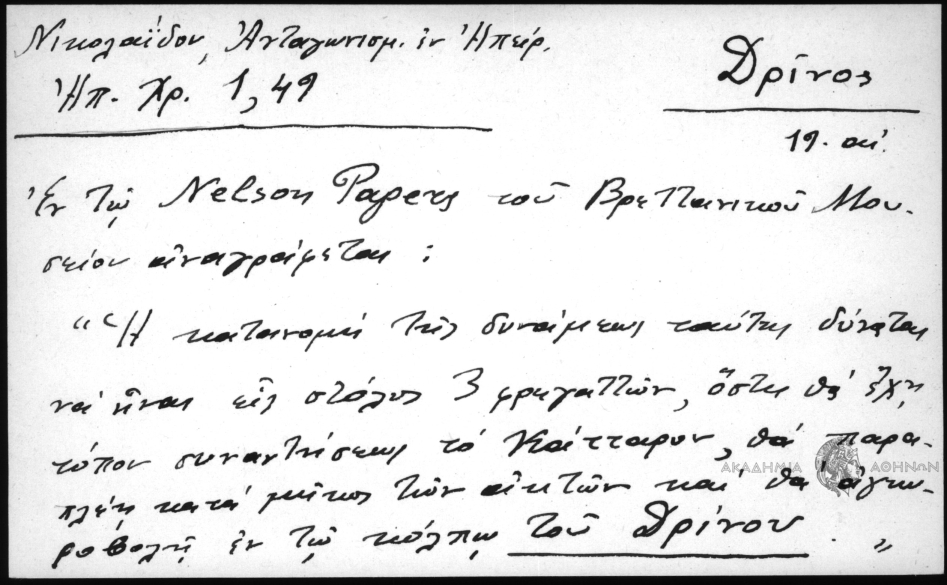 Νικολαΐδου, Ἀνταγωνισμ. ἐν Ἠπείρ.
Ἠπ. Χρ. 1, 49
Δρίνος
19. αἰ.
Ἐν τῷ Nelson Papers τοῦ Βρεττανικοῦ Μου-
σείου ἀναγράφεται :
"Ἡ κατανομή τῆς δυνάμεως ταύτης δύναται
νά εἶναι εἷς στόλος 3 φρεγαττῶν, ὅστις θά ἔχῃ
τόπον συναντήσεως τό Κάτταρον, θά παρα-
πλέῃ κατά μῆκος τῶν ἀκτῶν καί θά ἀγκυ-
ροβολῇ ἐν τῷ κόλπῳ τοῦ Δρίνου. "
ΑΚΑΔΗΜΙΑ ΑΘΗΝΩΝ